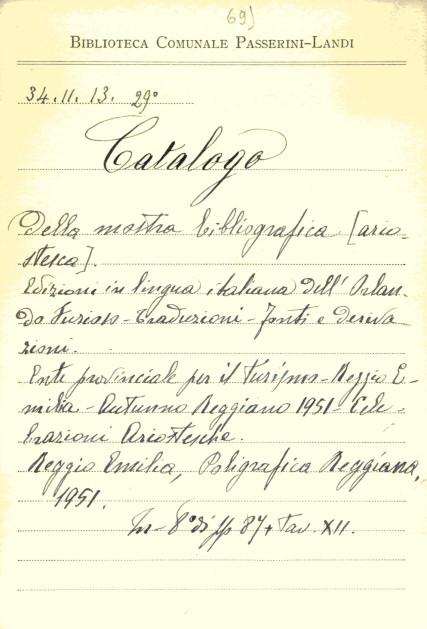 69)
BIBLIOTECA COMUNALE PASSERINI-LANDI
34.11.13. 29°
Catalogo
Della mostra bibliografica [ario-
stesca].
Edizioni in lingua italiana dell'Orlan-
do Furioso - Traduzioni - Fonti e deriva
zioni.
Ente provinciale per il Turismo - Reggio E-
milia - Autunno Reggiano 1951 - Cele-
brazioni Ariostesche.
Reggio Emilia, Poligrafica Reggiana,
1951.
In-8° di pp 87 + tav. XII.